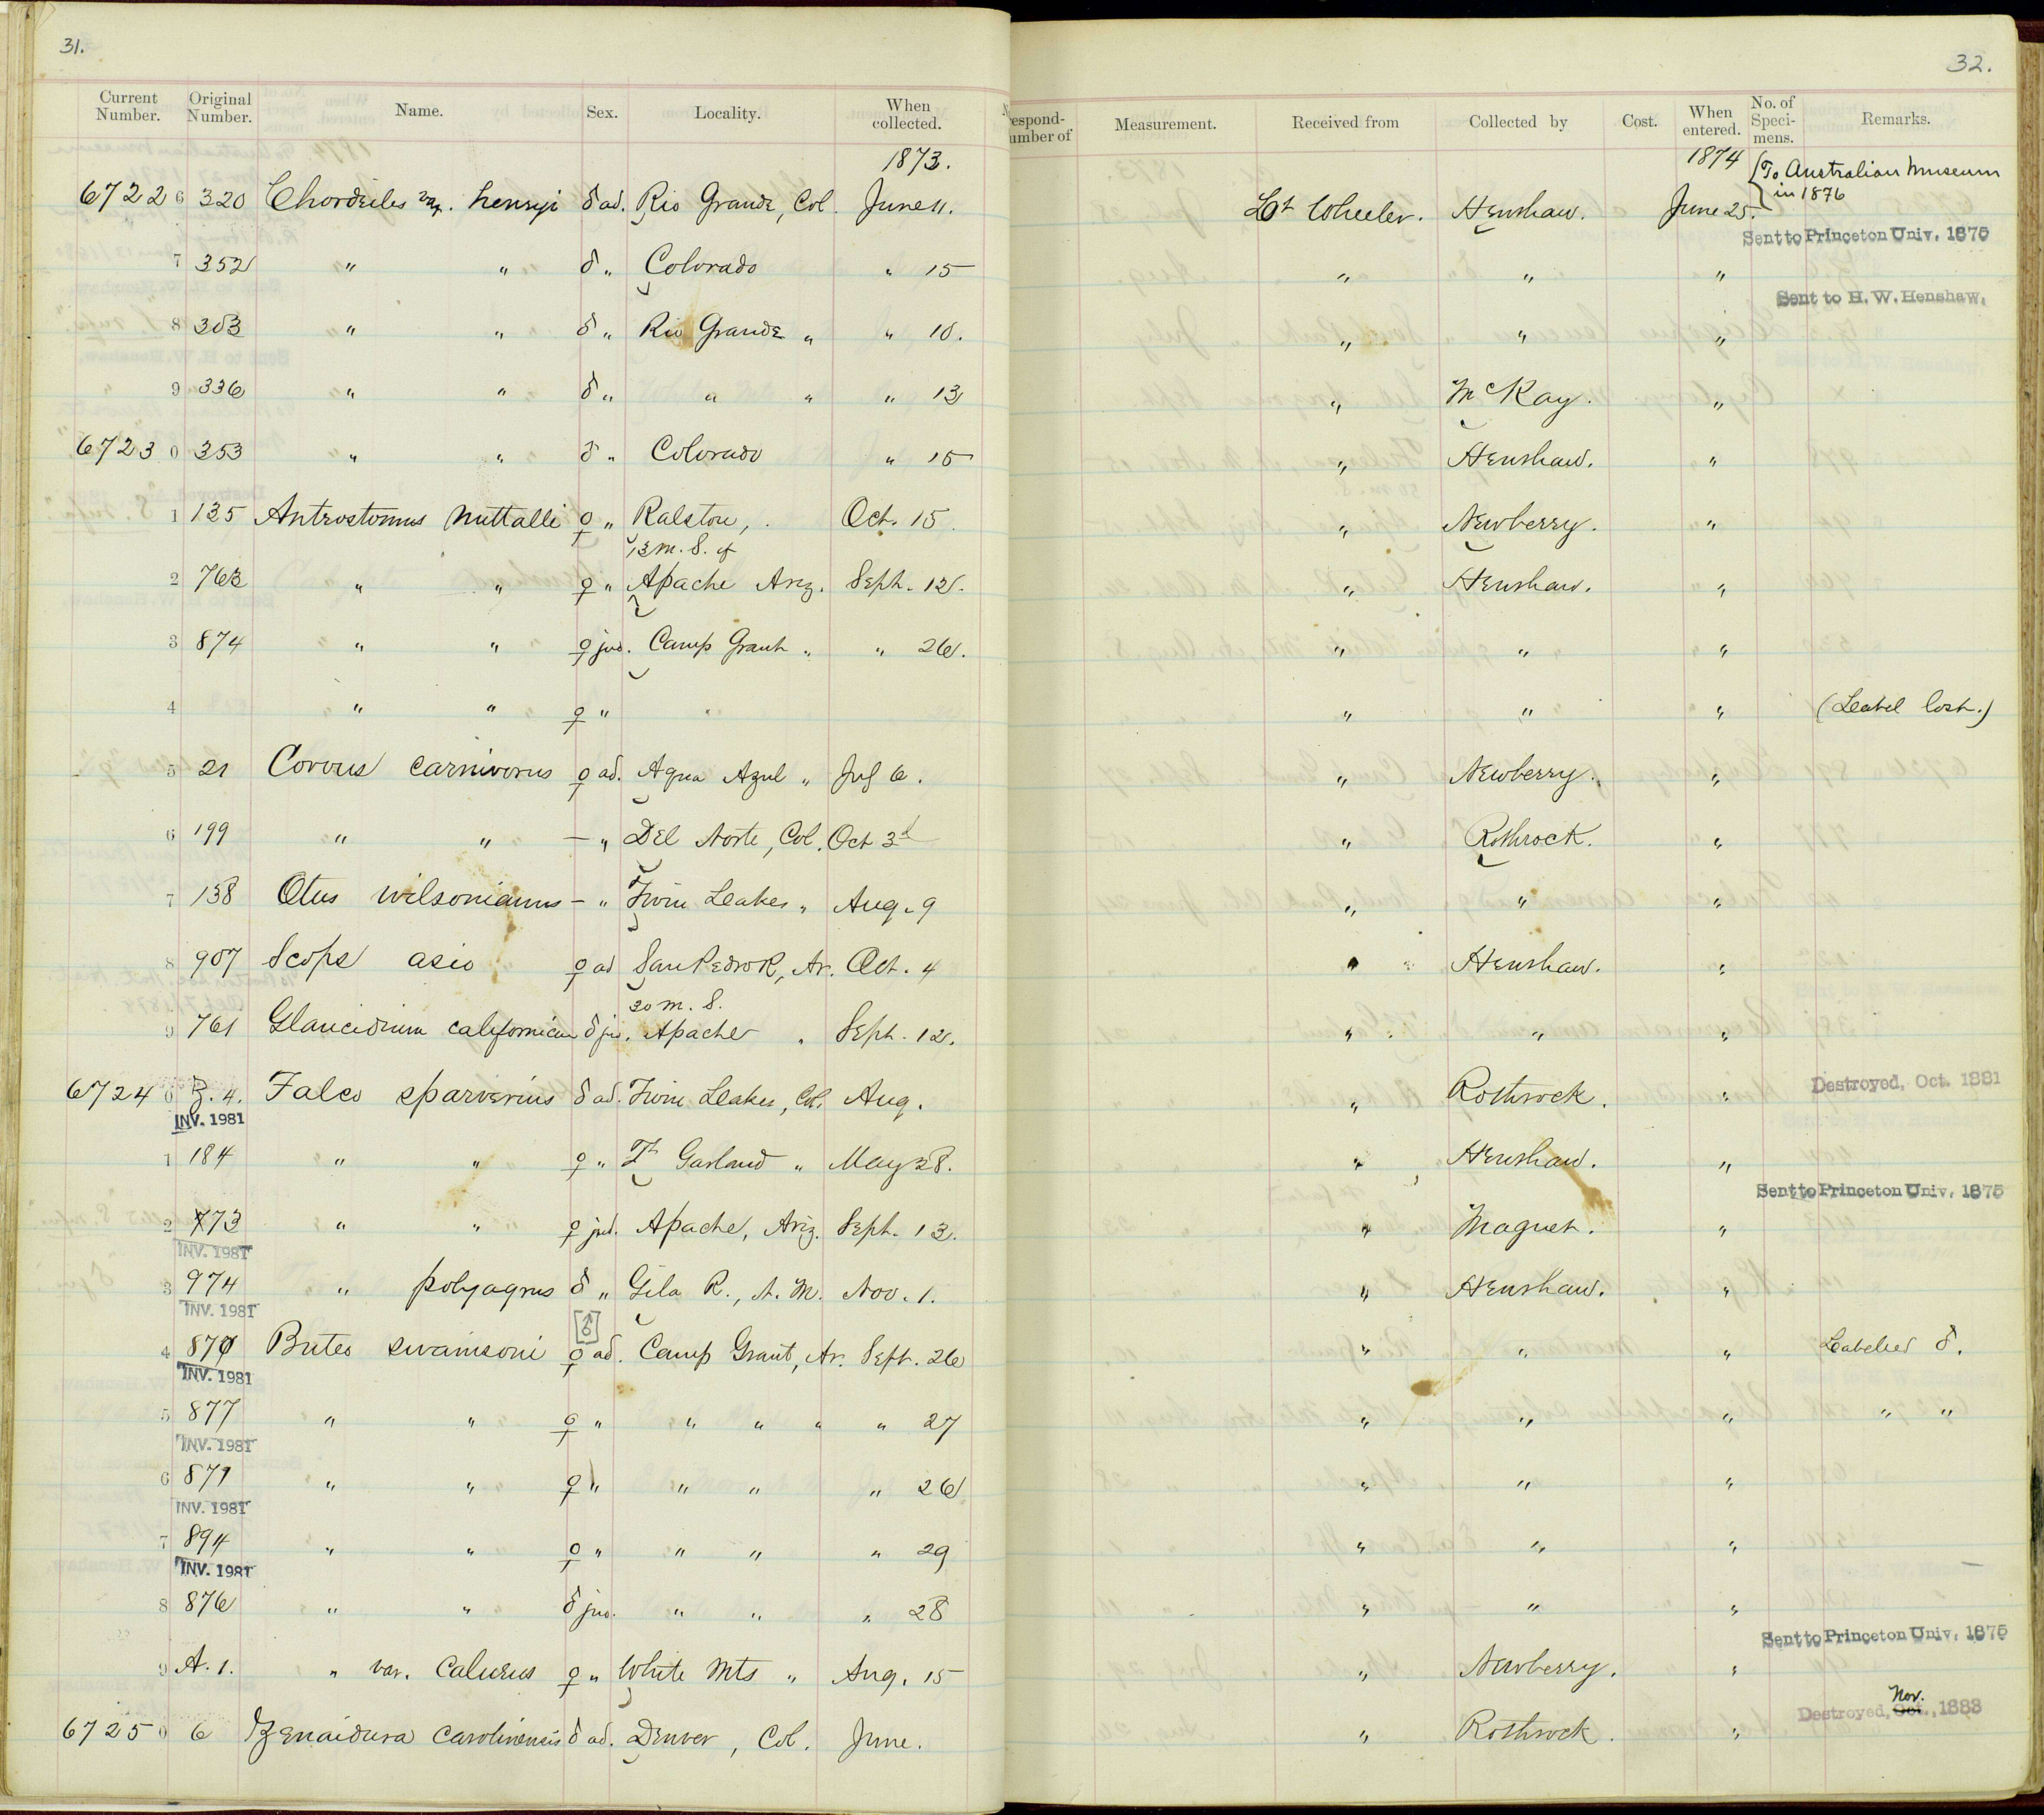 31.
32.
Current Number. Original Number. Name. Sex. Locality. When collected. respond- umber of Measurement. Received from Collected by Cost. When entered. No. of Speci- mens. Remarks.
1873. 1874 To Australian Museum in 1876
67226 320 Chordeiles var. henryi ♂ ad. Rio Grande, Col. June 11. Lt Wheeler. Henshaw. June 25.
Sent to Princeton Univ. 1875
7 352 " " ♂ " Colorado " 15 " " "
Sent to H. W. Henshaw.
8 303 " " ♂ " Rio Grande " " 10. " " "
9 336 " " ♂ " " " " 13 " McKay. "
67230 353 " " ♂ " Colorado " 15 " Henshaw. "
1 135 Antrostomus nuttalli ♀ " Ralston, Oct. 15. " Newberry. "
13 m. S. of
2 763 " " ♀ " Apache Ariz. Sept. 12. " Henshaw. "
3 874 " " ♀ juv. Camp Grant " " 26. " " "
4 " " ♀ " " " " (Label lost.)
5 21 Corvus carnivorus ♀ ad. Agua Azul " July 6. " Newberry. "
6 199 " " — " Del Norte, Col. Oct 3d " Rothrock. "
7 138 Otus wilsonianus — " Twin Lakes " Aug. 9 " " "
8 907 Scops asio ♀ ad San Pedro R, Ar. Oct. 4 " Henshaw. "
20 m. S.
9 761 Glaucidium californicum ♂ juv. Apache " Sept. 12. " " "
67240 Z. 4. Falco sparverius ♂ ad. Twin Lakes, Col. Aug. " Rothrock. " Destroyed, Oct. 1881
INV. 1981
1 184 " " ♀ " Ft Garland " May 28. " Henshaw. "
Sent to Princeton Univ. 1875
2 773 " " ♀ juv. Apache, Ariz. Sept. 13. " Magnet. "
INV. 1981
3 974 " polyagrus ♂ " Gila R., N. M. Nov. 1. " Henshaw. "
INV. 1981
[♂]
4 870 Buteo swainsoni ♀ ad. Camp Grant, Ar. Sept. 26 " " " Labelled ♂.
INV. 1981
5 877 " " ♀ " " " " " 27 " " " " "
INV. 1981
6 871 " " ♀ " " " " 26 " " "
INV. 1981
7 894 " " ♀ " " " " 29 " " "
INV. 1981
8 876 " " ♂ juv. " " " 28 " " "
Sent to Princeton Univ. 1875
9 A. 1. " var. calurus ♀ " White Mts " Aug. 15 " Newberry. "
Nov.
Destroyed, Oct., 1883
67250 6 Zenaidura carolinensis ♂ ad. Denver, Col. June. " Rothrock. "